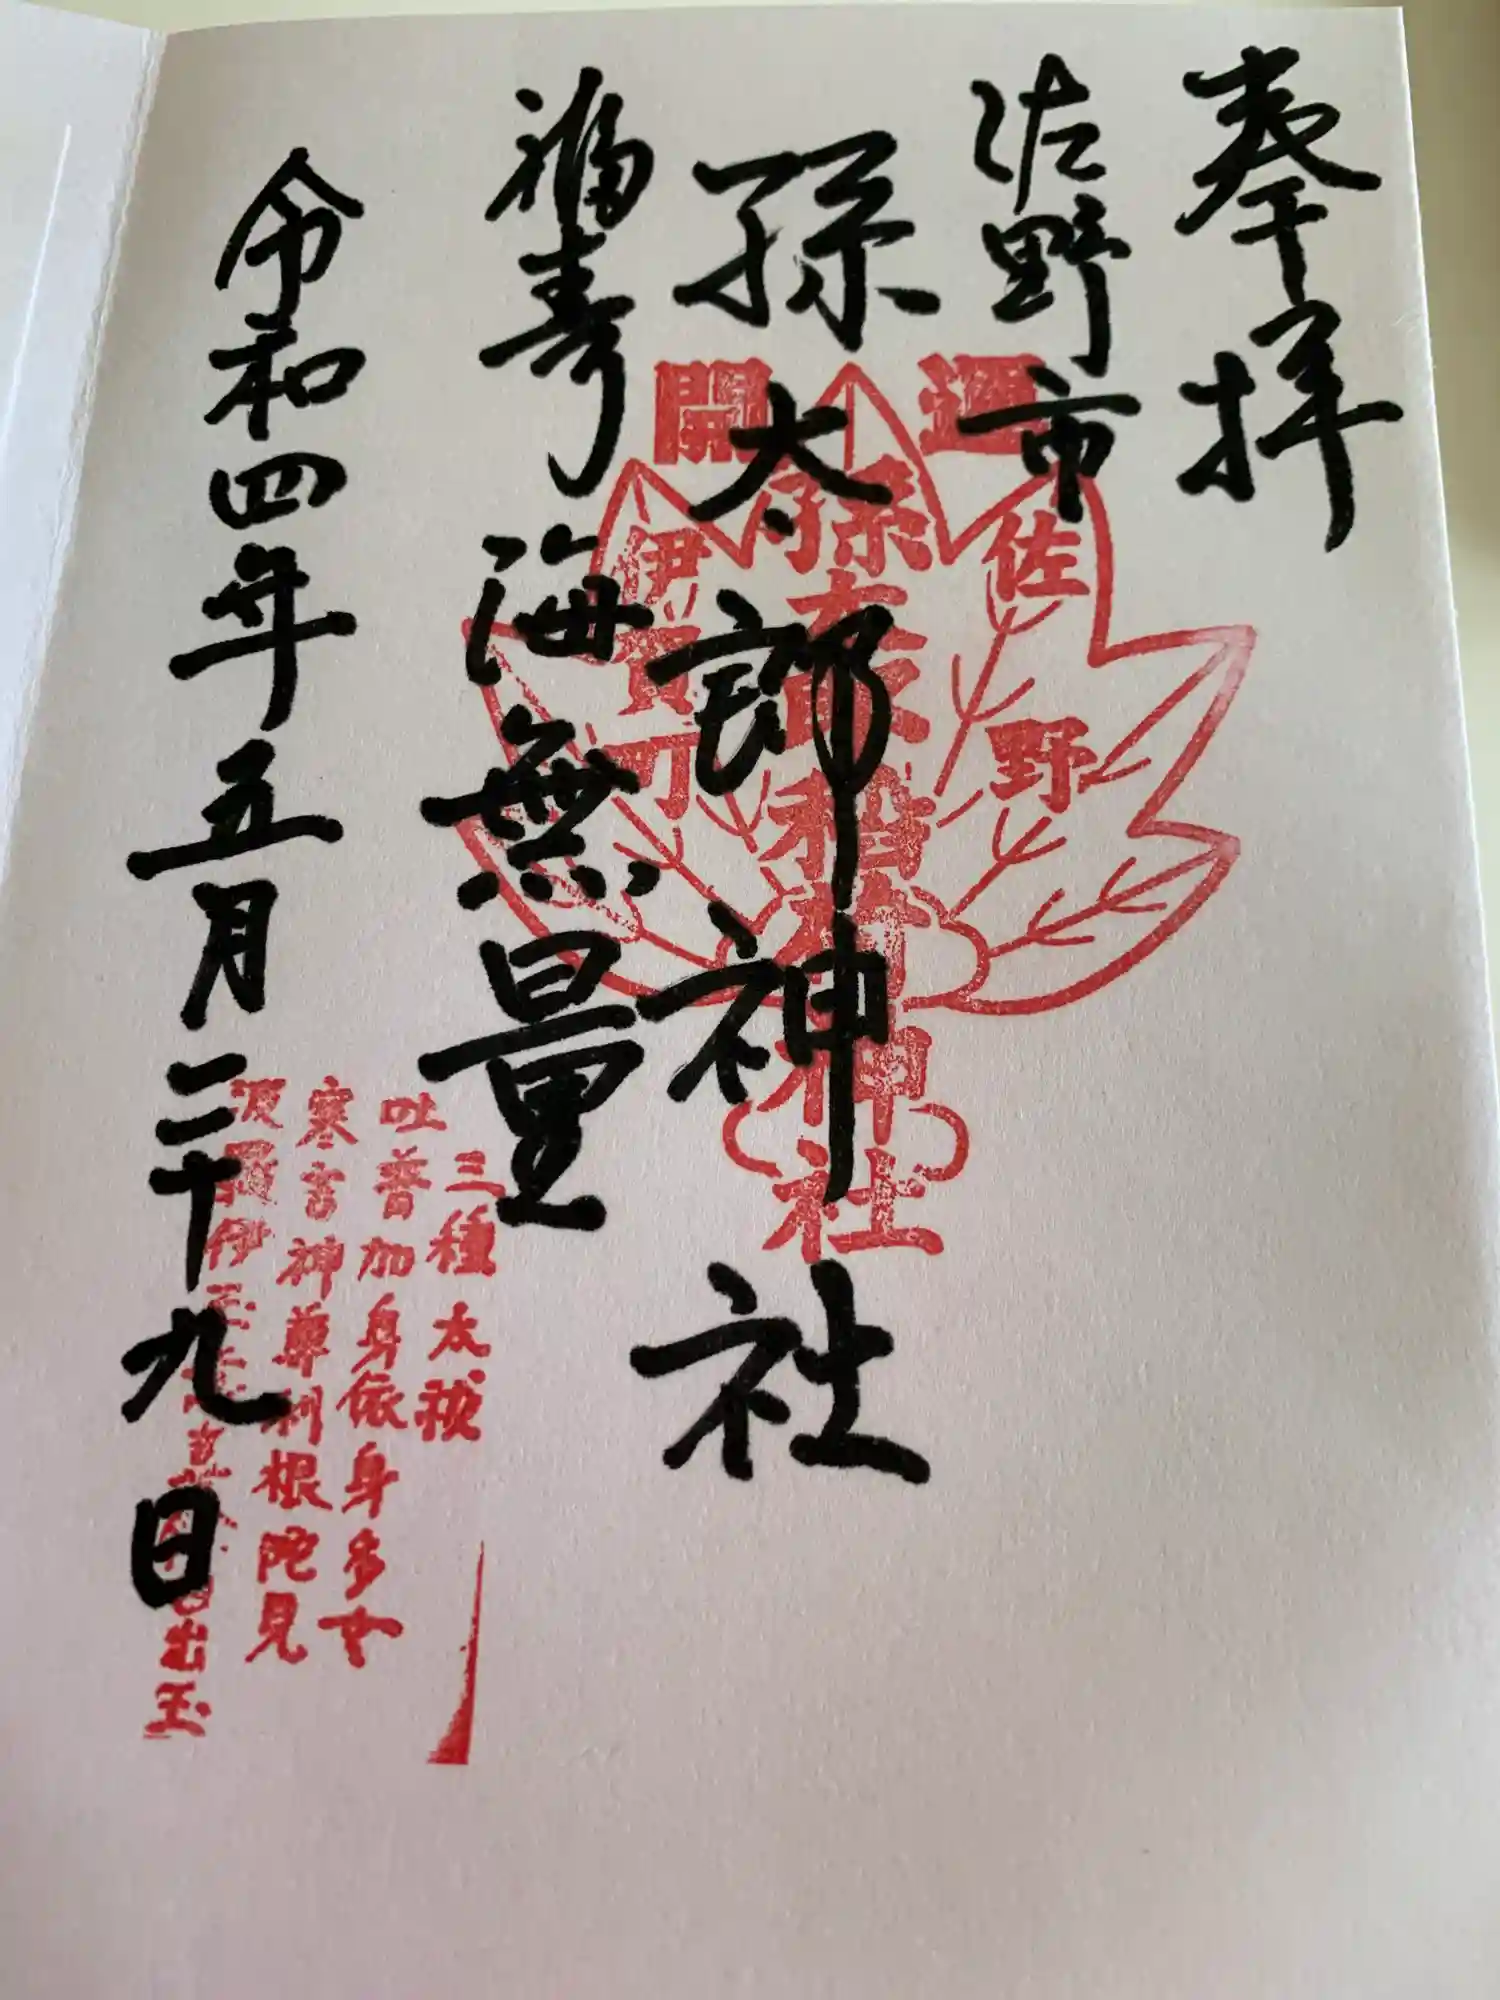 奉拝
佐野市
孫太郎神社
福寿海無量
令和四年五月二十九日
開運
佐野
孫太郎稲荷神社
伊賀町
三種太祓
吐普加身依身多女
寒言神尊利根陀見
出玉